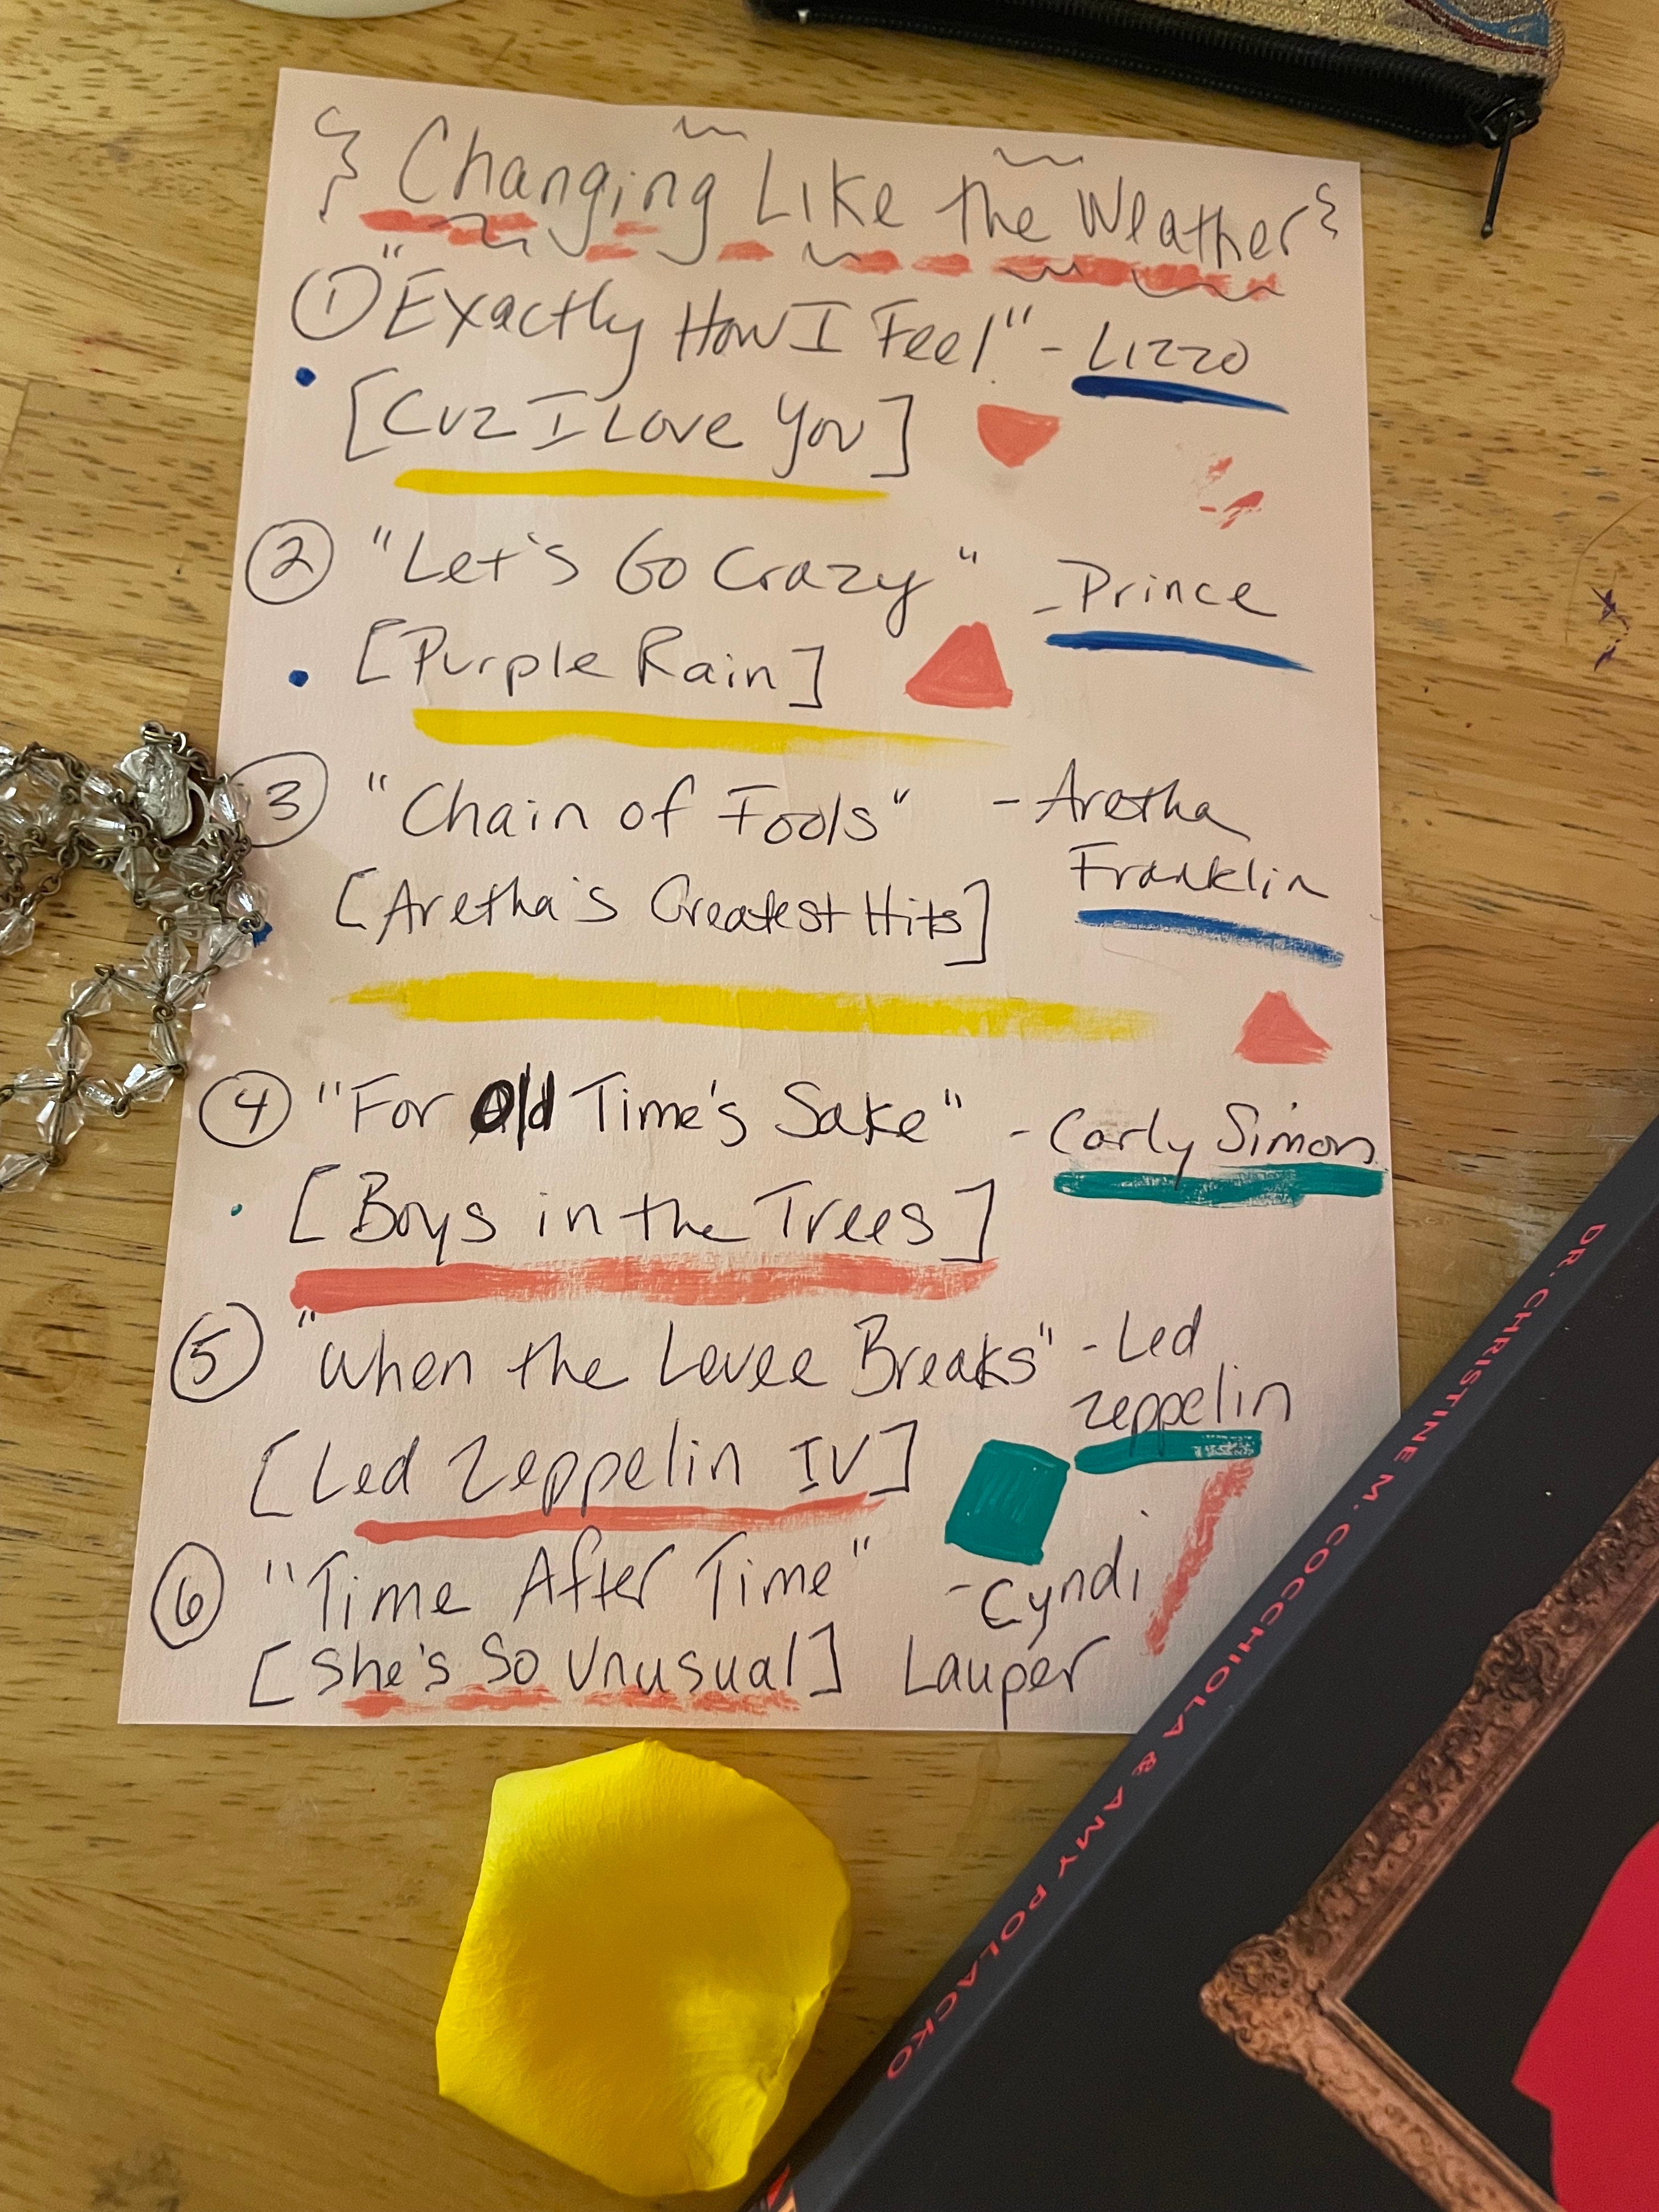 { Changing Like the Weather }
① "Exactly How I Feel" - Lizzo
[Cuz I Love You]
② "Let's Go Crazy" - Prince
[Purple Rain]
③ "Chain of Fools" - Aretha
Franklin
[Aretha's Greatest Hits]
④ "For Old Time's Sake" - Carly Simon
[Boys in the Trees]
⑤ "When the Levee Breaks" - Led
Zeppelin
[Led Zeppelin IV]
⑥ "Time After Time" - Cyndi
[She's So Unusual] Lauper
DR. CHRISTINE M. COCCHIOLA & AMY POLACKO